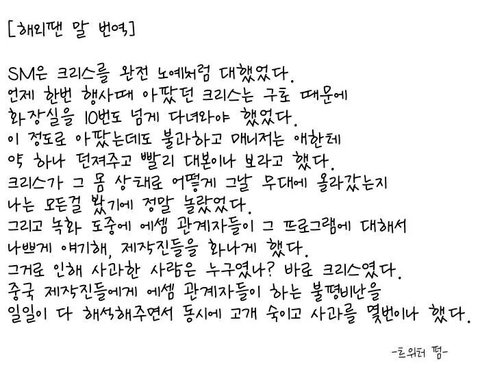 [해외팬 말 번역]
SM은 크리스를 완전 노예처럼 대했었다.
언제 한번 행사때 아팠던 크리스는 구토 때문에
화장실을 10번도 넘게 다녀와야 했었다.
이 정도로 아팠는데도 불과하고 매니저는 애한테
약 하나 던져주고 빨리 대본이나 보라고 했다.
크리스가 그 몸 상태로 어떻게 그날 무대에 올라갔는지
나는 모든걸 봤기에 정말 놀랐었다.
그리고 녹화 도중에 에셈 관계자들이 그 프로그램에 대해서
나쁘게 얘기해, 제작진들을 화나게 했다.
그거로 인해 사과한 사람은 누구였나? 바로 크리스였다.
중국 제작진들에게 에셈 관계자들이 하는 불평비난을
일일이 다 해석해주면서 동시에 고개 숙이고 사과를 몇번이나 했다.
-트위터 펌-